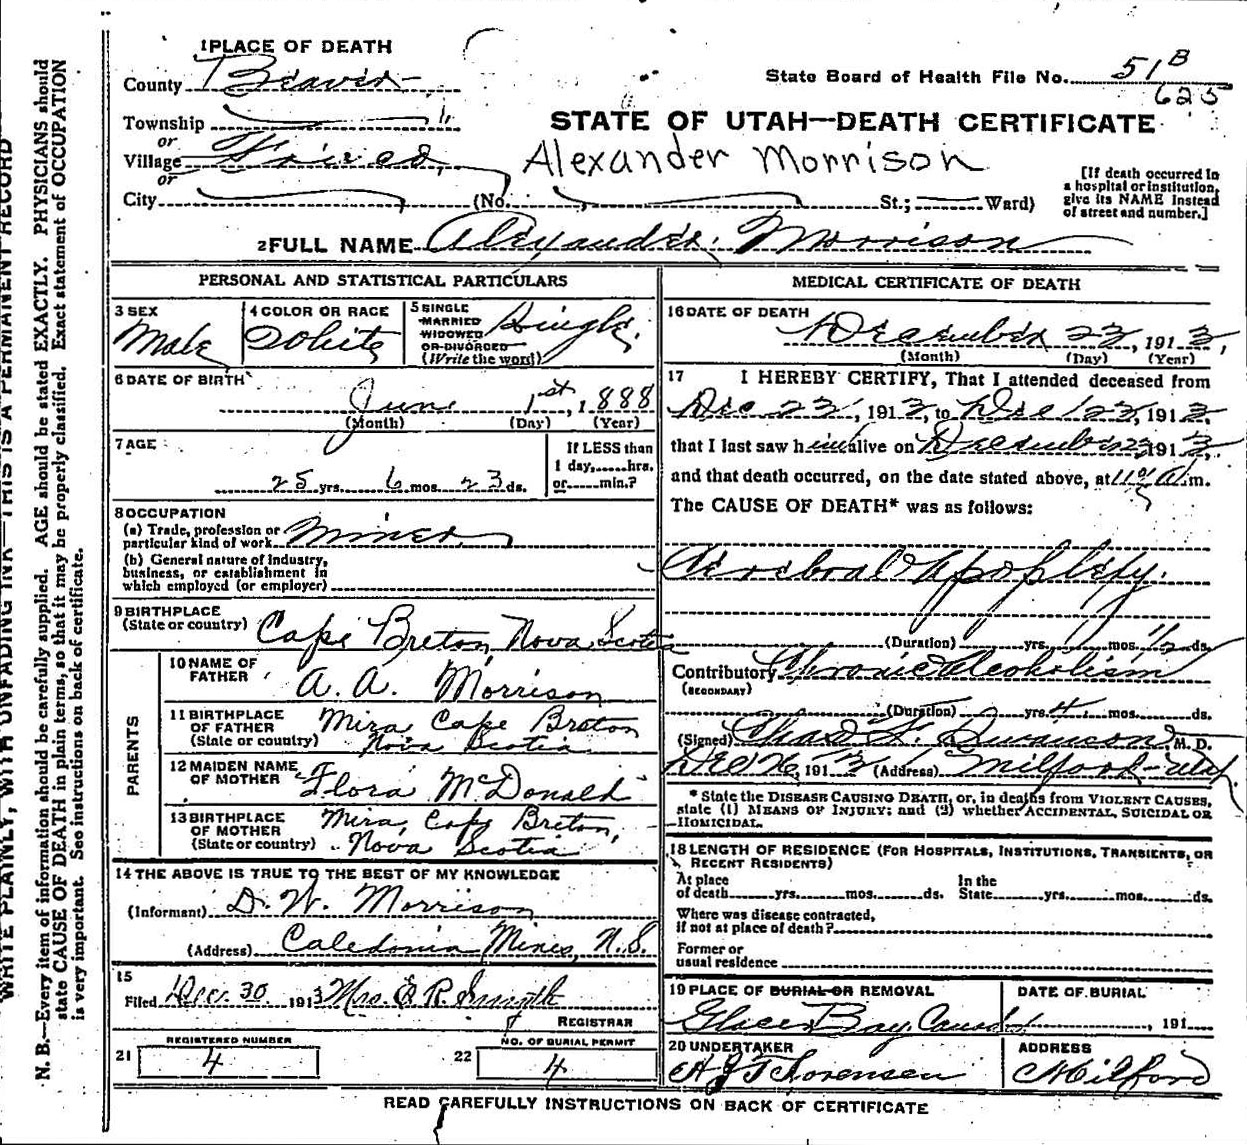 1 PLACE OF DEATH
County Beaver
State Board of Health File No. 51 B
625
Township
or
Village Frisco
or
City (No. St.; Ward)
STATE OF UTAH—DEATH CERTIFICATE
Alexander Morrison
[If death occurred in
a hospital or institution,
give its NAME instead
of street and number.]
2 FULL NAME Alexander Morrison
PERSONAL AND STATISTICAL PARTICULARS
3 SEX
Male
4 COLOR OR RACE
White
5 SINGLE
MARRIED
WIDOWED
OR DIVORCED
(Write the word)
Single
6 DATE OF BIRTH
June 1st, 1888
(Month) (Day) (Year)
7 AGE
25 yrs. 6 mos. 23 ds.
If LESS than
1 day,......hrs.
or......min.?
8 OCCUPATION
(a) Trade, profession or
particular kind of work Miner
(b) General nature of industry,
business, or establishment in
which employed (or employer)
9 BIRTHPLACE
(State or country) Cape Breton Nova Scotia
PARENTS
10 NAME OF
FATHER
A. A. Morrison
11 BIRTHPLACE
OF FATHER
(State or country)
Mira, Cape Breton
Nova Scotia
12 MAIDEN NAME
OF MOTHER
Flora McDonald
13 BIRTHPLACE
OF MOTHER
(State or country)
Mira, Cape Breton,
Nova Scotia
14 THE ABOVE IS TRUE TO THE BEST OF MY KNOWLEDGE
(Informant) D. W. Morrison
(Address) Caledonia Mines, N.S.
15
Filed Dec. 30 1913 Mrs. E R. Smyth
REGISTRAR
21 REGISTERED NUMBER
4
22 NO. OF BURIAL PERMIT
4
MEDICAL CERTIFICATE OF DEATH
16 DATE OF DEATH
December 23, 1913,
(Month) (Day) (Year)
17 I HEREBY CERTIFY, That I attended deceased from
Dec 23, 1913, to Dec 23, 1913,
that I last saw him alive on December 23, 1913,
and that death occurred, on the date stated above, at 11 A. m.
The CAUSE OF DEATH* was as follows:
Cerebral Apoplexy.
(Duration) yrs. mos. 1/2 ds.
Contributory Chronic Alcoholism
(SECONDARY)
(Duration) yrs. 4 mos. ds.
(Signed) Chas F. Swanson M. D.
Dec 26, 1913 (Address) Milford-Utah.
* State the DISEASE CAUSING DEATH, or, in deaths from VIOLENT CAUSES,
state (1) MEANS OF INJURY; and (2) whether ACCIDENTAL, SUICIDAL OR
HOMICIDAL.
18 LENGTH OF RESIDENCE (FOR HOSPITALS, INSTITUTIONS, TRANSIENTS, OR
RECENT RESIDENTS)
At place In the
of death......yrs......mos......ds. State......yrs......mos......ds.
Where was disease contracted,
If not at place of death?
Former or
usual residence
19 PLACE OF BURIAL OR REMOVAL
Glace Bay, Canada
DATE OF BURIAL
, 191
20 UNDERTAKER
A J Thorensen
ADDRESS
Milford
READ CAREFULLY INSTRUCTIONS ON BACK OF CERTIFICATE
WRITE PLAINLY, WITH UNFADING INK—THIS IS A PERMANENT RECORD
N. B.—Every item of information should be carefully supplied. AGE should be stated EXACTLY. PHYSICIANS should
state CAUSE OF DEATH in plain terms, so that it may be properly classified. Exact statement of OCCUPATION
is very important. See instructions on back of certificate.